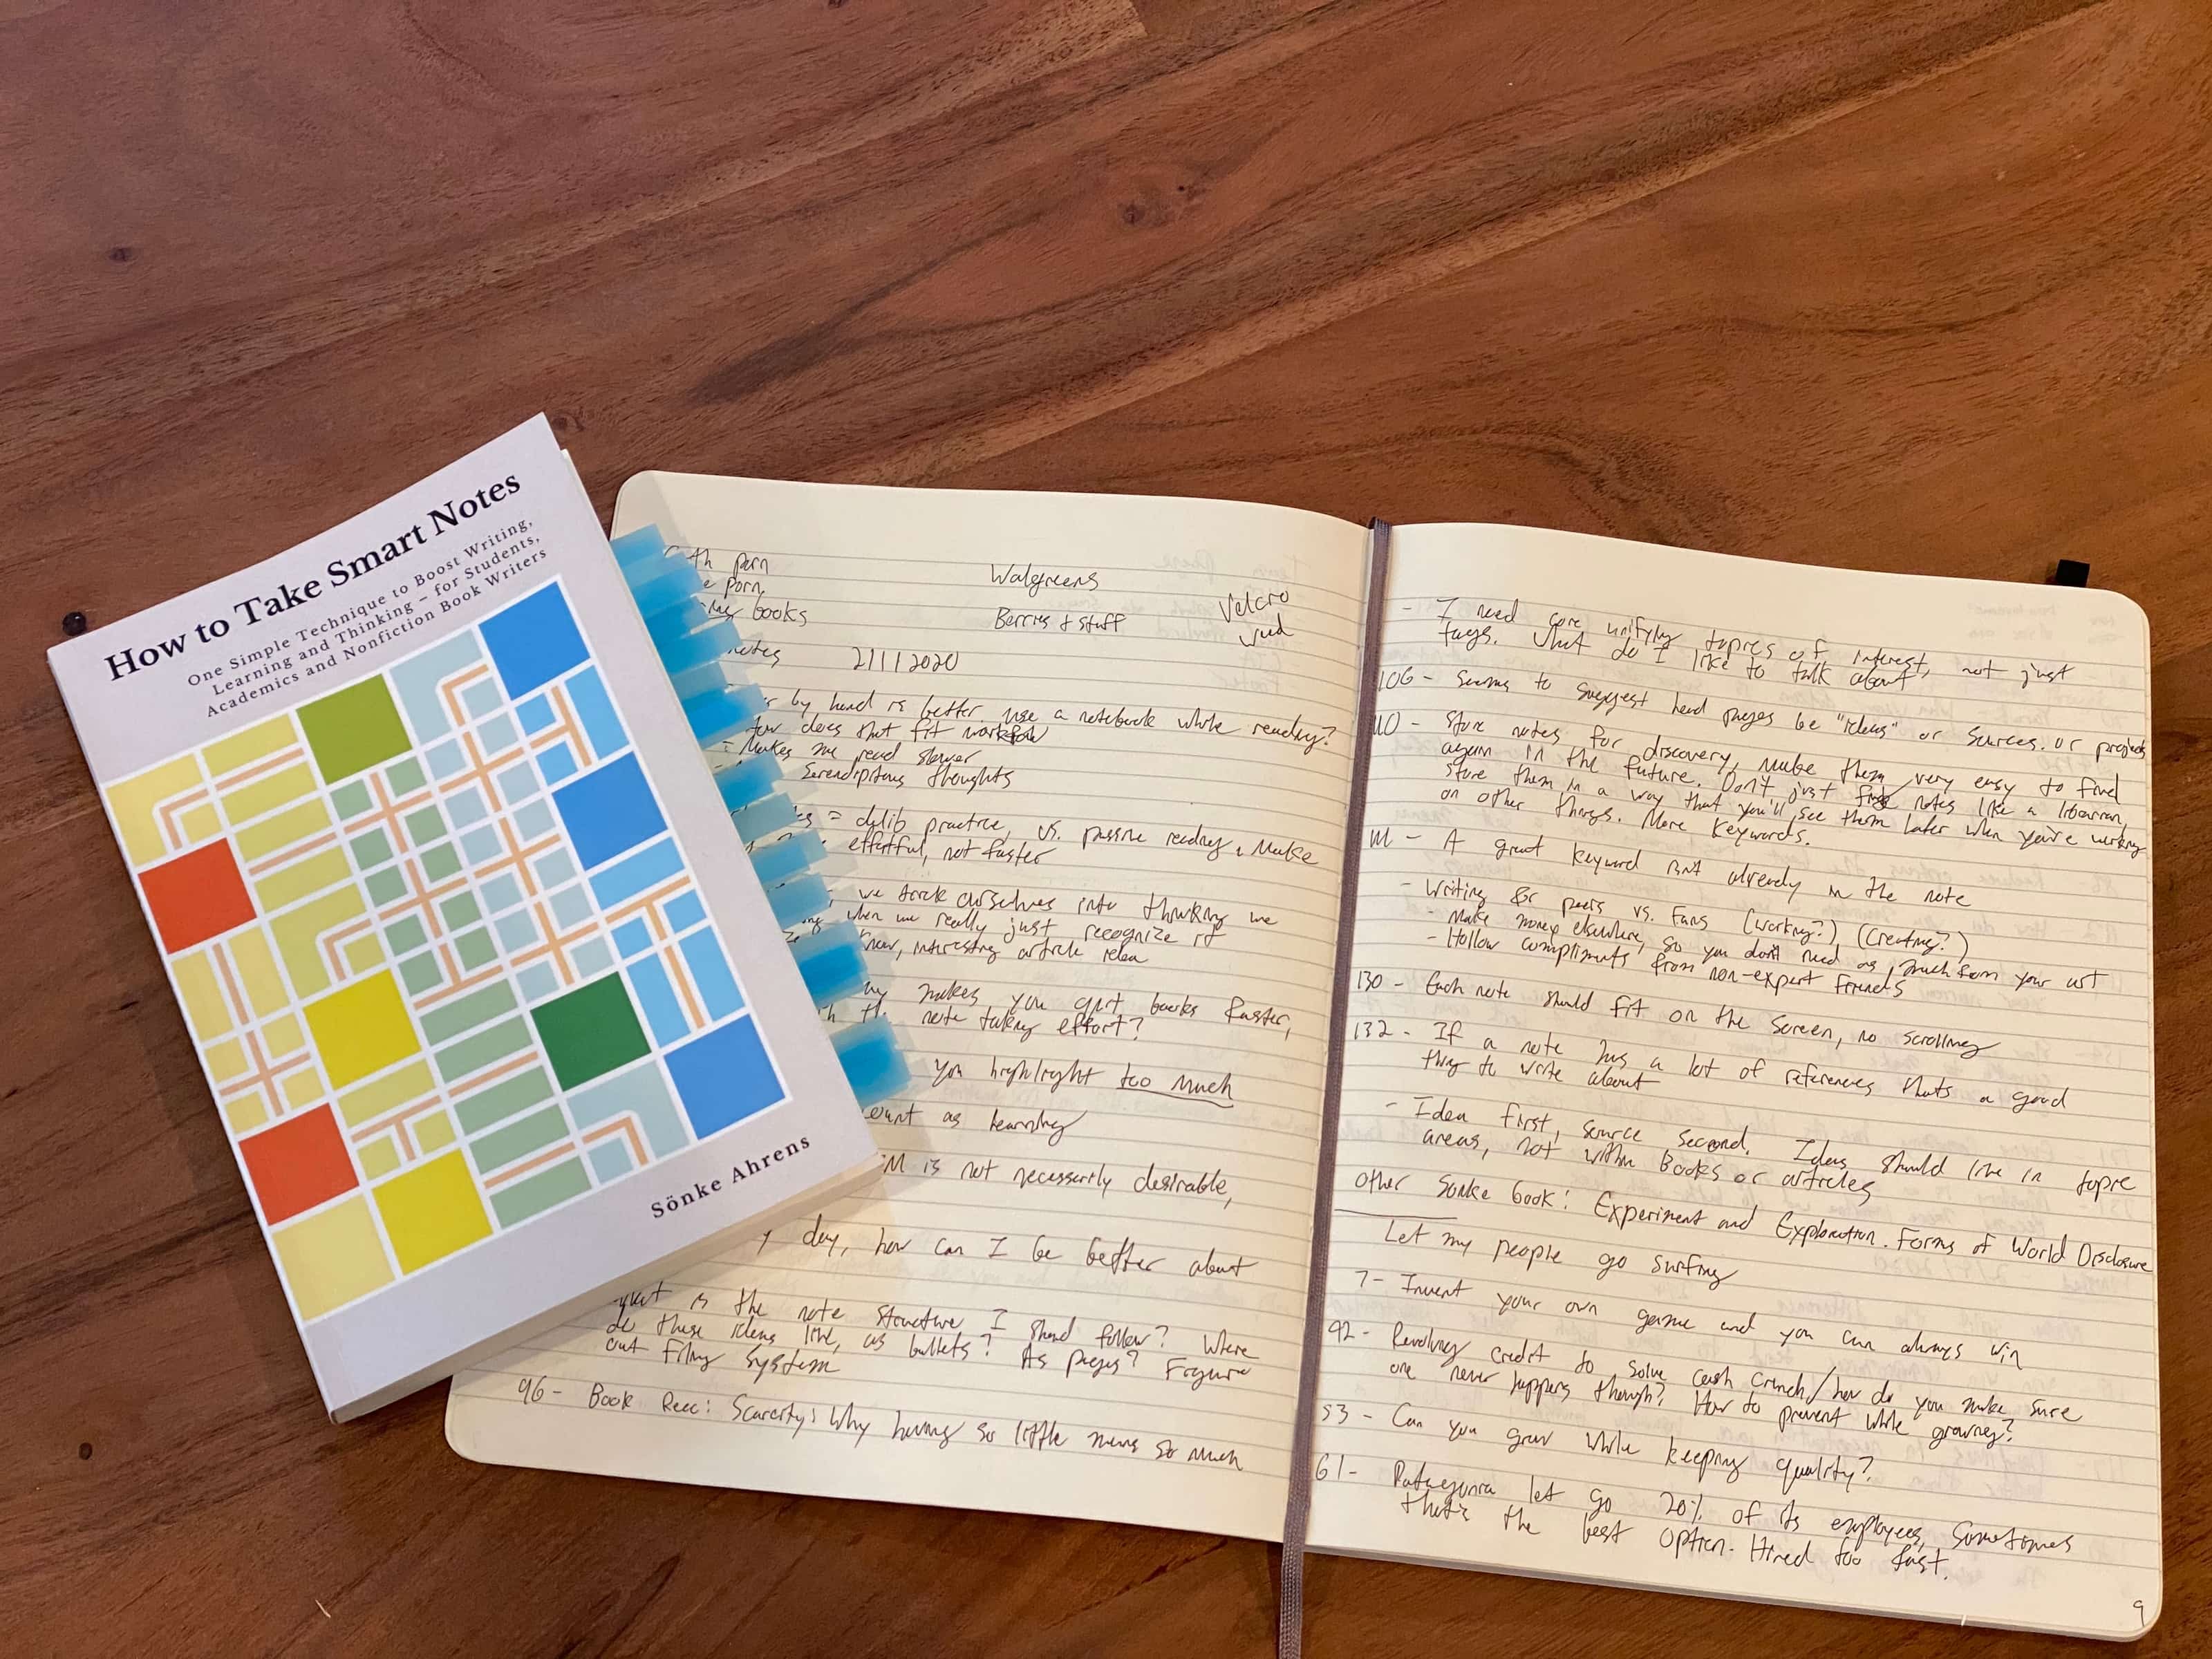 How to Take Smart Notes
One Simple Technique to Boost Writing,
Learning and Thinking – for Students,
Academics and Nonfiction Book Writers
Sönke Ahrens
th porn
e porn,
books
Walgreens
Berries & stuff
Velcro
notes
2/11/2020
by hand is better use a notebook while reading?
does that fit
- Makes me read slower
Serendipitous thoughts
= delib practice, vs. passive reading. Make
effortful, not faster
we trick ourselves into thinking we
when we really just recognize it
new, interesting article idea
makes you quit books faster,
th note taking effort?
you highlight too much
count as learning
is not necessarily desirable,
y day, how can I be better about
is the note structure I should follow? Where
do these ideas live, as bullets? As pages? Figure
out filing system
96 - Book Rec: Scarcity: Why having so little means so much
- I need core unifying topics of interest, not just
tags. What do I like to talk about
106 - Seems to suggest head pages be "ideas" or sources. or projects
110 - Store notes for discovery, make them very easy to find
again in the future. Don't just notes like a librarian,
store them in a way that you'll see them later when you're working
on other things. More keywords.
111 - A great keyword isn't already in the note
- Writing for peers vs. Fans (working?) (Creating?)
- Make money elsewhere, so you don't need as much from your art
- Hollow compliments from non-expert friends
130 - Each note should fit on the screen, no scrolling
132 - If a note has a lot of references thats a good
thing to write about
- Idea first, source second. Ideas should live in topic
areas, not within Books or articles
other Sonke book: Experiment and Exploration. Forms of World Disclosure
Let my people go surfing
7 - Invent your own game and you can always win
92 - Revolving credit to solve cash crunch/how do you make sure
one never happens though? How to prevent while growing?
53 - Can you grow while keeping quality?
61 - Patagonia let go 20% of its employees, sometimes
that's the best option. Hired too fast.
9